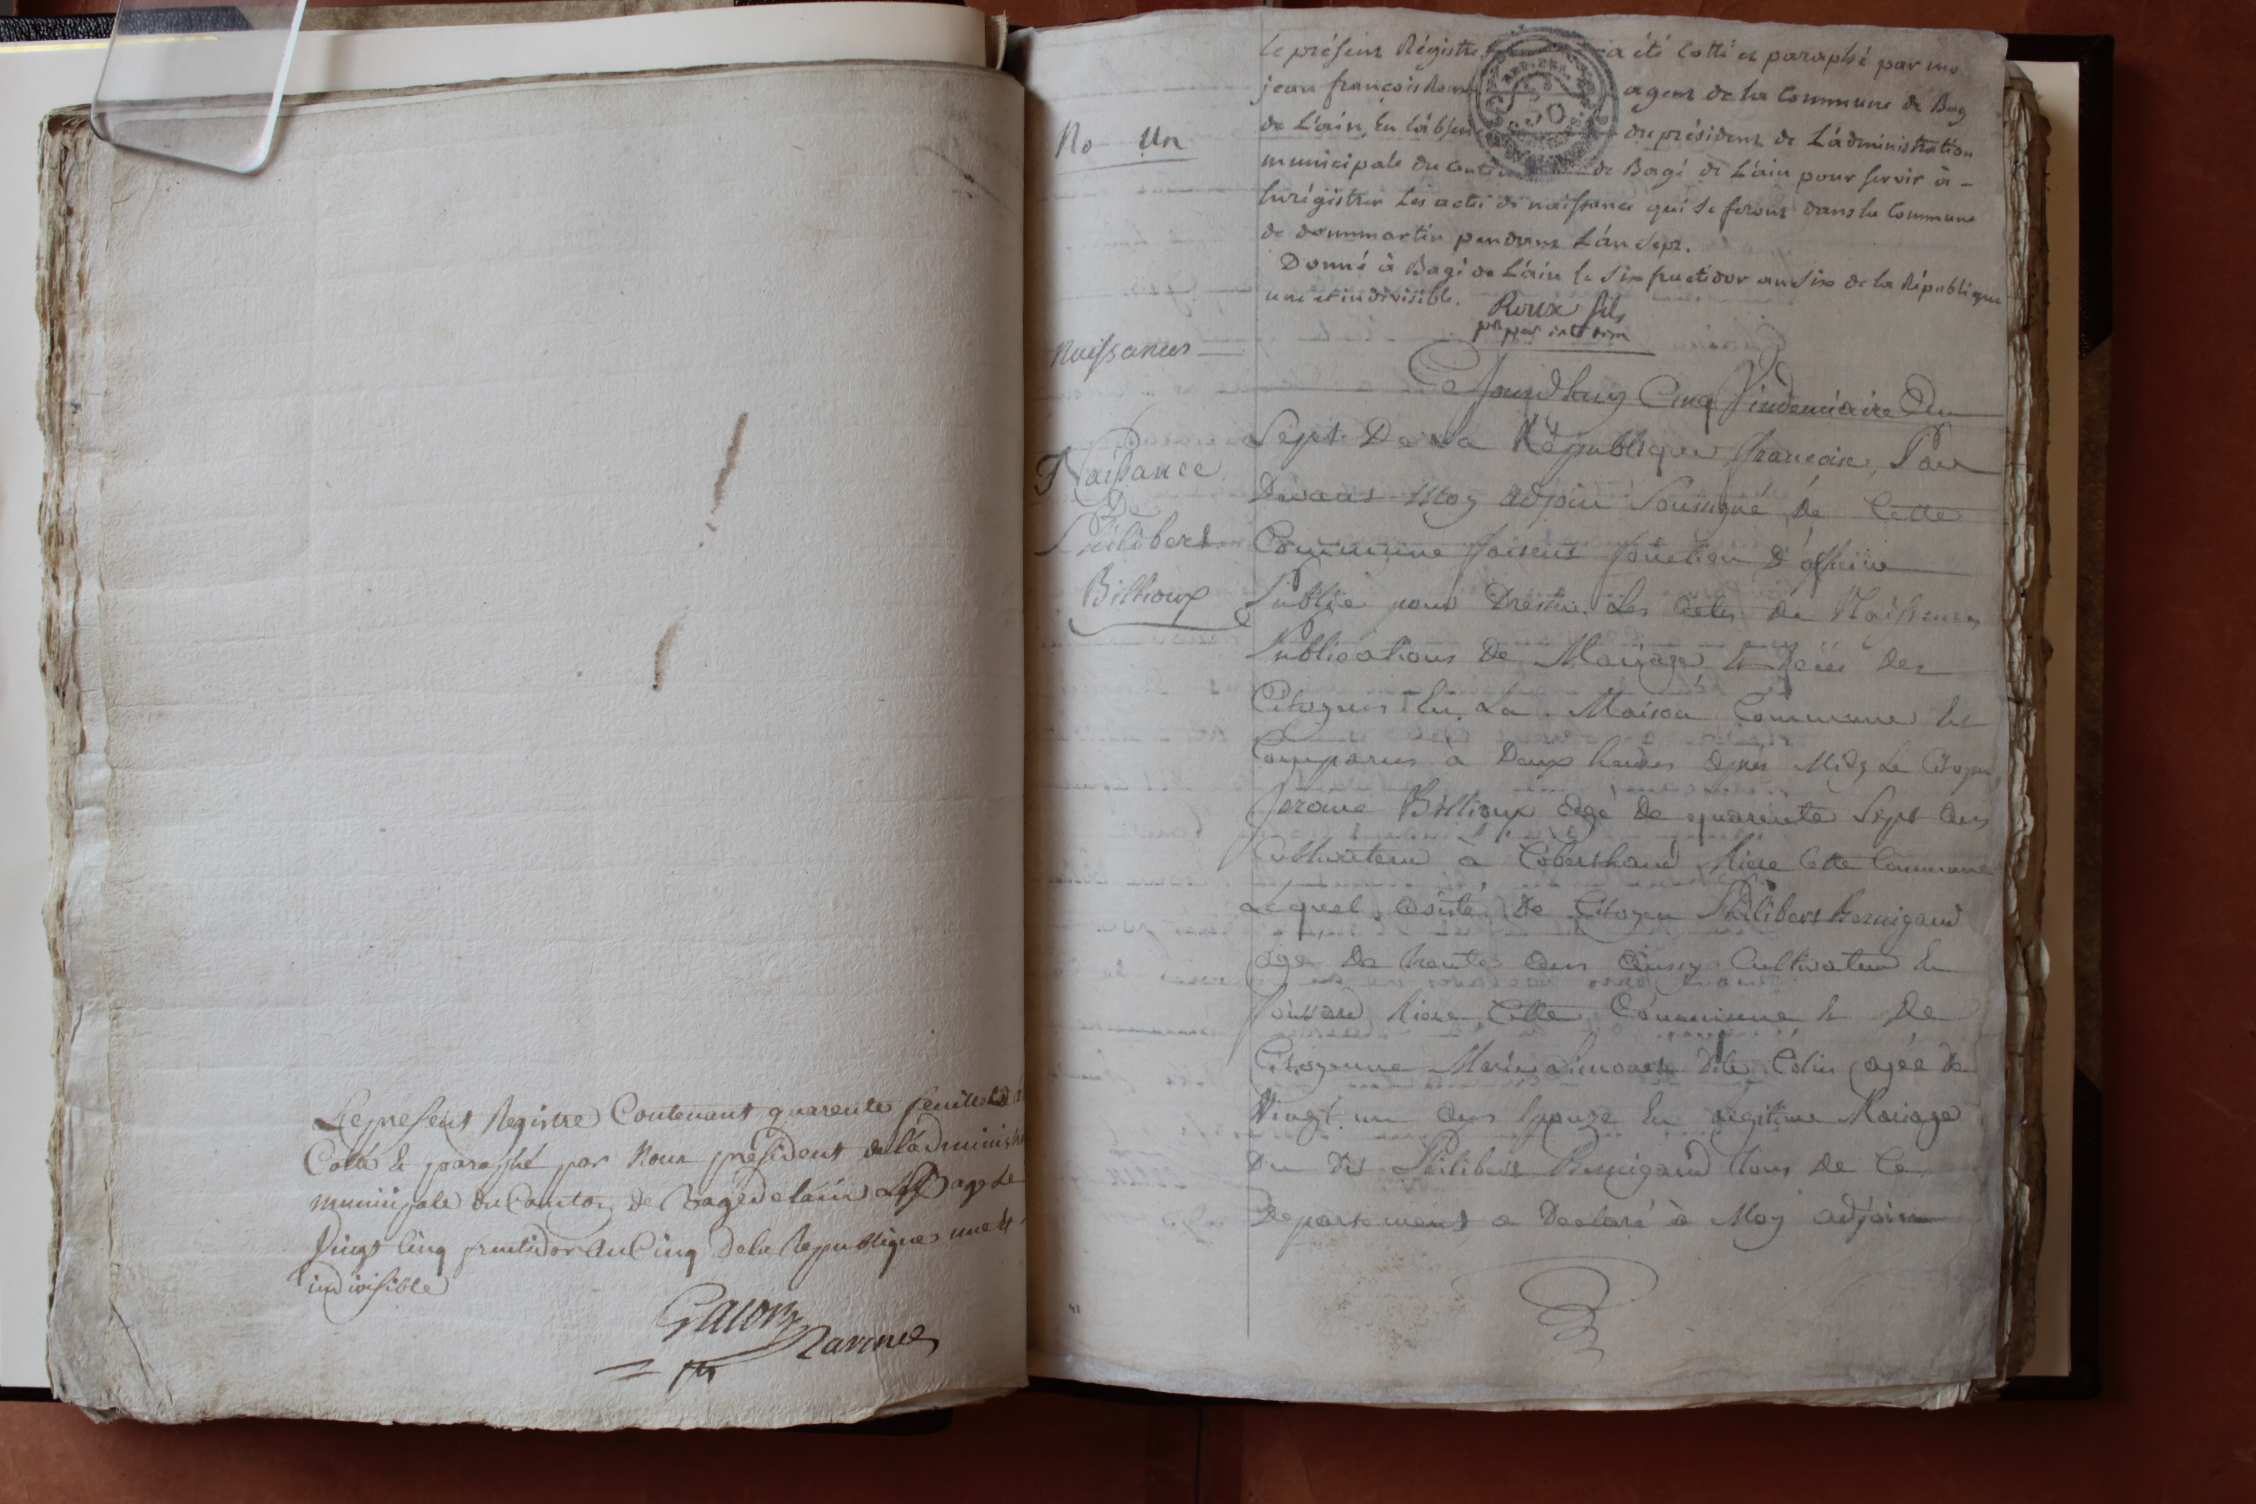 Le present Registre Contenant quarente feuillets a
Coté & paraphé par Nous président de l'adminis
municipale du Canton de Bagé de lain A Bagé Le
Vingt Cinq fructidor an Cinq de la Republique une et
indivisible
No Un
Le présent Régistre a été Cotté et paraphé par moi
jean francois Roux agent de la Commune de Bagé
de L'ain, En L'absence du président de L'administration
municipale du Canton de Bagé de L'ain pour servir à
Enrégistrer Les actes de naissance qui Se feront dans la Commune
de dommartin pendant L'an Sept.
Donné à Bagé de L'ain le Six fructidor an Six de la République
une et indivisible. Roux fils
pdt par interim
Naissances
Ce Jourdhuy Cinq Vindemiaire an
Sept De La République francoise, Par
Devant Moy adjoin Soussigné de Cette
Commune faisent fonction d'officie
Public pour Dresser Les actes de Naissences
Publications De Mariage & Deces des
Citoyens En La Maison Commune Est
Comparus à Deux heures apres Midy Le Citoyen
Jerome Billioux agé de quarente Sept ans
Cultivateur à Riere Cette Commune
Lequel, assisté De Citoyen Philibert Bernigaud
age De trente ans aussy Cultivateur En
Riere Cette Commune & De
Citoyenne Marie dite Colin agée de
Vingt un ans Epouze En Legitime Mariage
Du dit Philibert Bernigaud tous de Ce
Departement a Declaré à Moy adjoin
Naissance
De
Philibert
Billioux